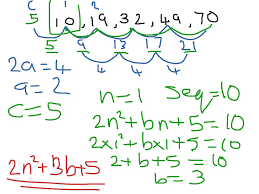 C 1 2
10, 19, 32, 49, 70
5 9 13 17 21
4 4 4
2a = 4
a = 2
c = 5
n = 1 Seq = 10
2n² + bn + 5 = 10
2x1² + bx1 + 5 = 10
2 + b + 5 = 10
b = 3
2n² + 3b + 5